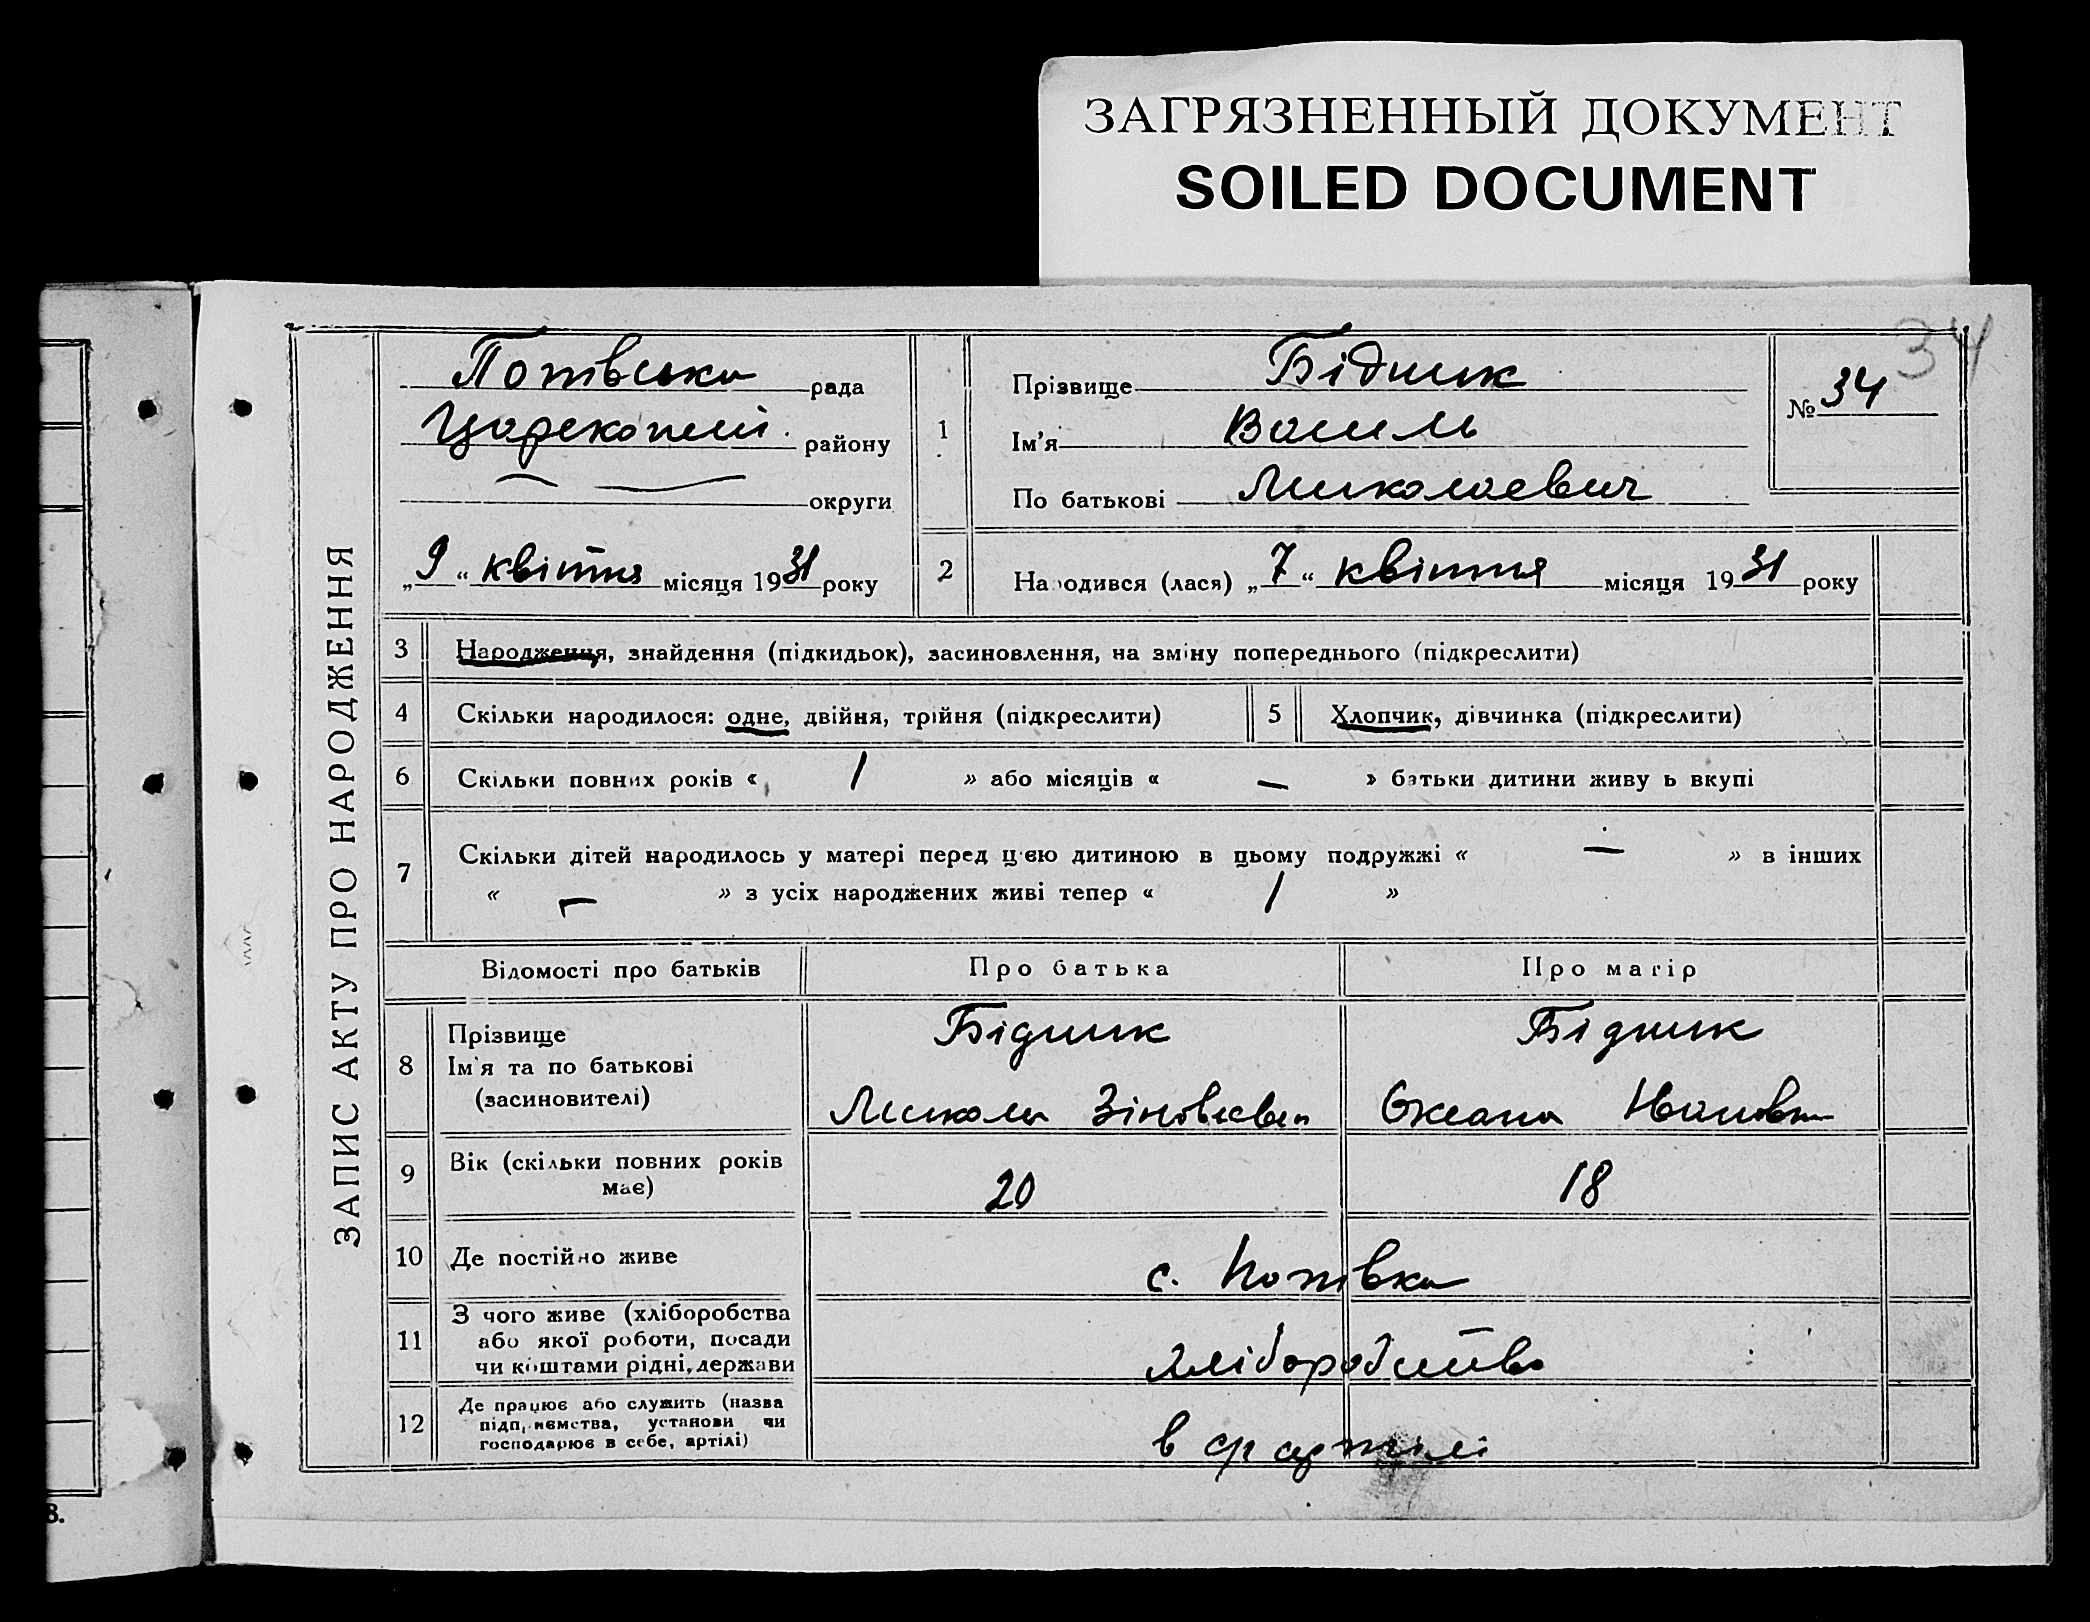 ЗАГРЯЗНЕННЫЙ ДОКУМЕНТ
SOILED DOCUMENT
34
ЗАПИС АКТУ ПРО НАРОДЖЕННЯ
Попівська рада
району
округи
„9“ квітня місяця 1931 року
1
Прізвище Бідник
Ім'я Василь
По батькові Миколаевич
№ 34
2
Народився (лася) „7“ квітня місяця 1931 року
3 Народження, знайдення (підкидьок), засиновлення, на зміну попереднього (підкреслити)
4 Скільки народилося: одне, двійня, трійня (підкреслити)
5 Хлопчик, дівчинка (підкреслити)
6 Скільки повних років « 1 » або місяців « — » батьки дитини живу ь вкупі
7 Скільки дітей народилось у матері перед цією дитиною в цьому подружжі « — » в інших
« — » з усіх народжених живі тепер « 1 »
Відомості про батьків Про батька Про матір
8 Прізвище
Ім'я та по батькові
(засиновителі)
Бідник
Микола
Бідник
9 Вік (скільки повних років
має)
20 18
10 Де постійно живе с. Попівка
11 З чого живе (хліборобства
або якої роботи, посади
чи коштами рідні, держави
хліборобство
12 Де працює або служить (назва
підприємства, установи чи
господарює в себе, артілі)
в артілі
8.